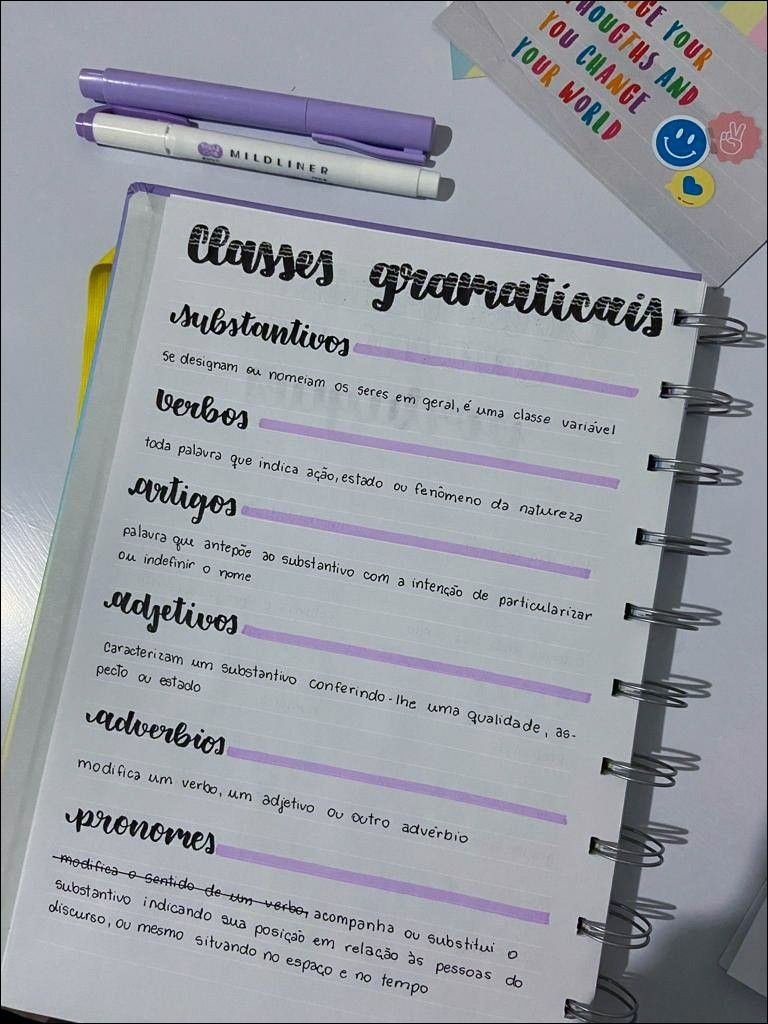 GE YOUR
THOUGTHS AND
YOU CHANGE
YOUR WORLD
MILDLINER
classes gramaticais
substantivos
se designam ou nomeiam os seres em geral, é uma classe variável
verbos
toda palavra que indica ação, estado ou fenômeno da natureza
artigos
palavra que antepõe ao substantivo com a intenção de particularizar
ou indefinir o nome
adjetivos
caracterizam um substantivo conferindo-lhe uma qualidade, as-
pecto ou estado
advérbios
modifica um verbo, um adjetivo ou outro advérbio
pronomes
modifica o sentido de um verbo, acompanha ou substitui o
substantivo indicando sua posição em relação às pessoas do
discurso, ou mesmo situando no espaço e no tempo